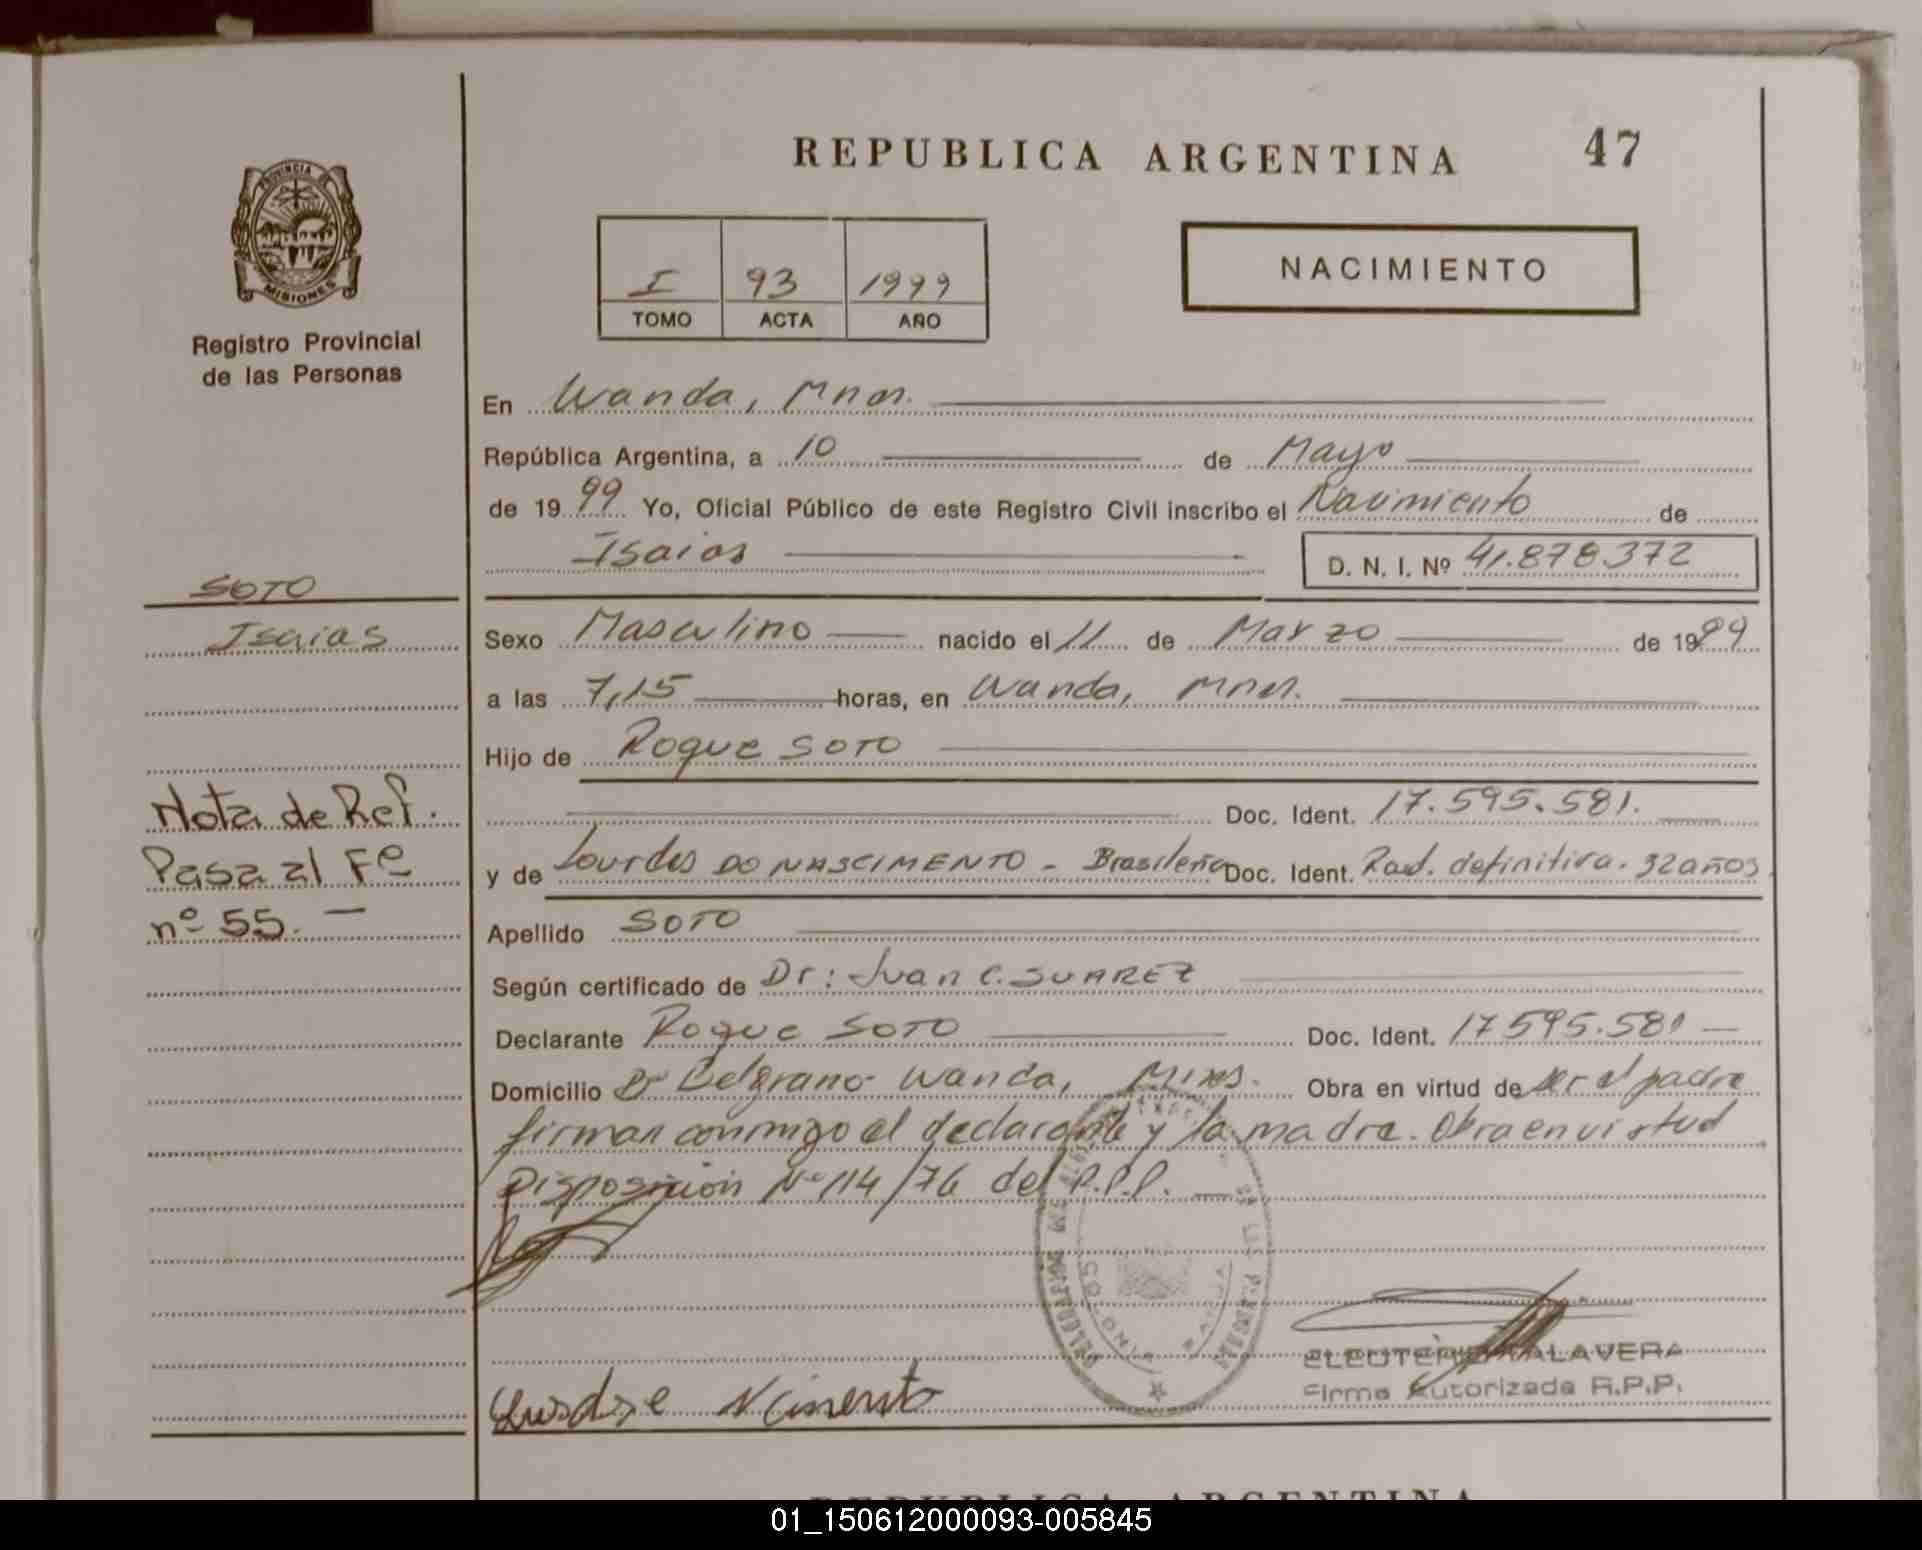 REPUBLICA ARGENTINA 47
PROVINCIA DE
MISIONES
Registro Provincial
de las Personas
I 93 1999
TOMO ACTA AÑO
NACIMIENTO
En Wanda, Mnes.
República Argentina, a 10 de Mayo
de 1999 Yo, Oficial Público de este Registro Civil inscribo el Nacimiento de
Isaias D. N. I. Nº 41.878.372
SOTO
Isaias
Sexo Masculino nacido el 11 de Marzo de 1999
a las 7,15 horas, en Wanda, Mnes.
Hijo de Roque SOTO
Doc. Ident. 17.595.581.
y de Lourdes DO NASCIMENTO - Brasileña Doc. Ident. Rad. definitiva. 32 años
Nota de Ref.
Pasa al Fe
nº 55. —
Apellido SOTO
Según certificado de Dr: Juan C. SUAREZ
Declarante Roque SOTO Doc. Ident. 17595.581
Domicilio Bº Belgrano Wanda, Mnes. Obra en virtud de ser el padre
firman conmigo el declarante y la madre. Obra en virtud
Disposición Nº 114/76 del R.P.P.
ELEUTERIO TALAVERA
Firma Autorizada R.P.P.
REPUBLICA ARGENTINA
01_150612000093-005845